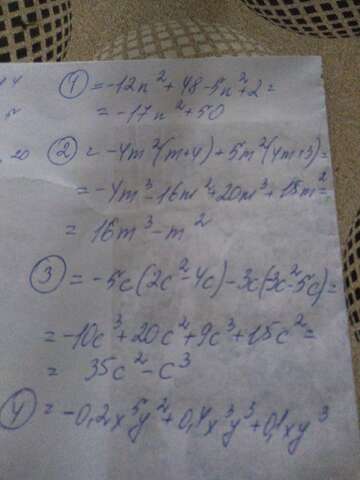 ① = -12n² + 48 - 5n² + 2 =
= -17n² + 50
20
② = -4m²(m+4) + 5m²(4m+3) =
= -4m³ - 16m² + 20m³ + 15m² =
= 16m³ - m²
③ = -5c(2c² - 4c) - 3c(-3c² - 5c) =
= -10c³ + 20c² + 9c³ + 15c² =
= 35c² - c³
④ = -0,2x⁵y² + 0,4x³y³ + 0,1xy³